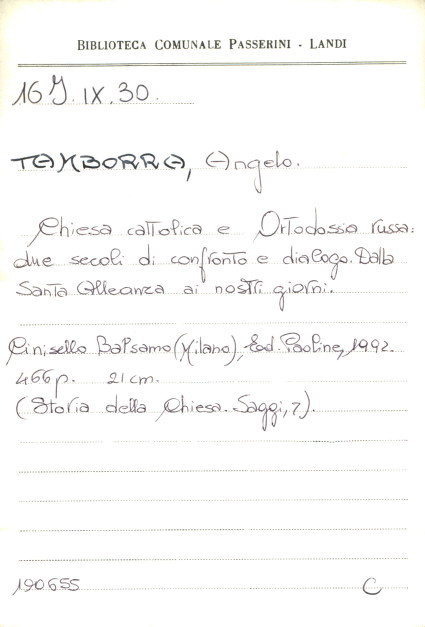 BIBLIOTECA COMUNALE PASSERINI - LANDI
16 J. IX. 30.
TAMBORRA, Angelo.
Chiesa cattolica e Ortodossia russa:
due secoli di confronto e dialogo. Dalla
Santa Alleanza ai nostri giorni.
Cinisello Balsamo (Milano), Ed. Paoline, 1992.
466 p. 21 cm.
(Storia della Chiesa. Saggi, 7).
190655 C